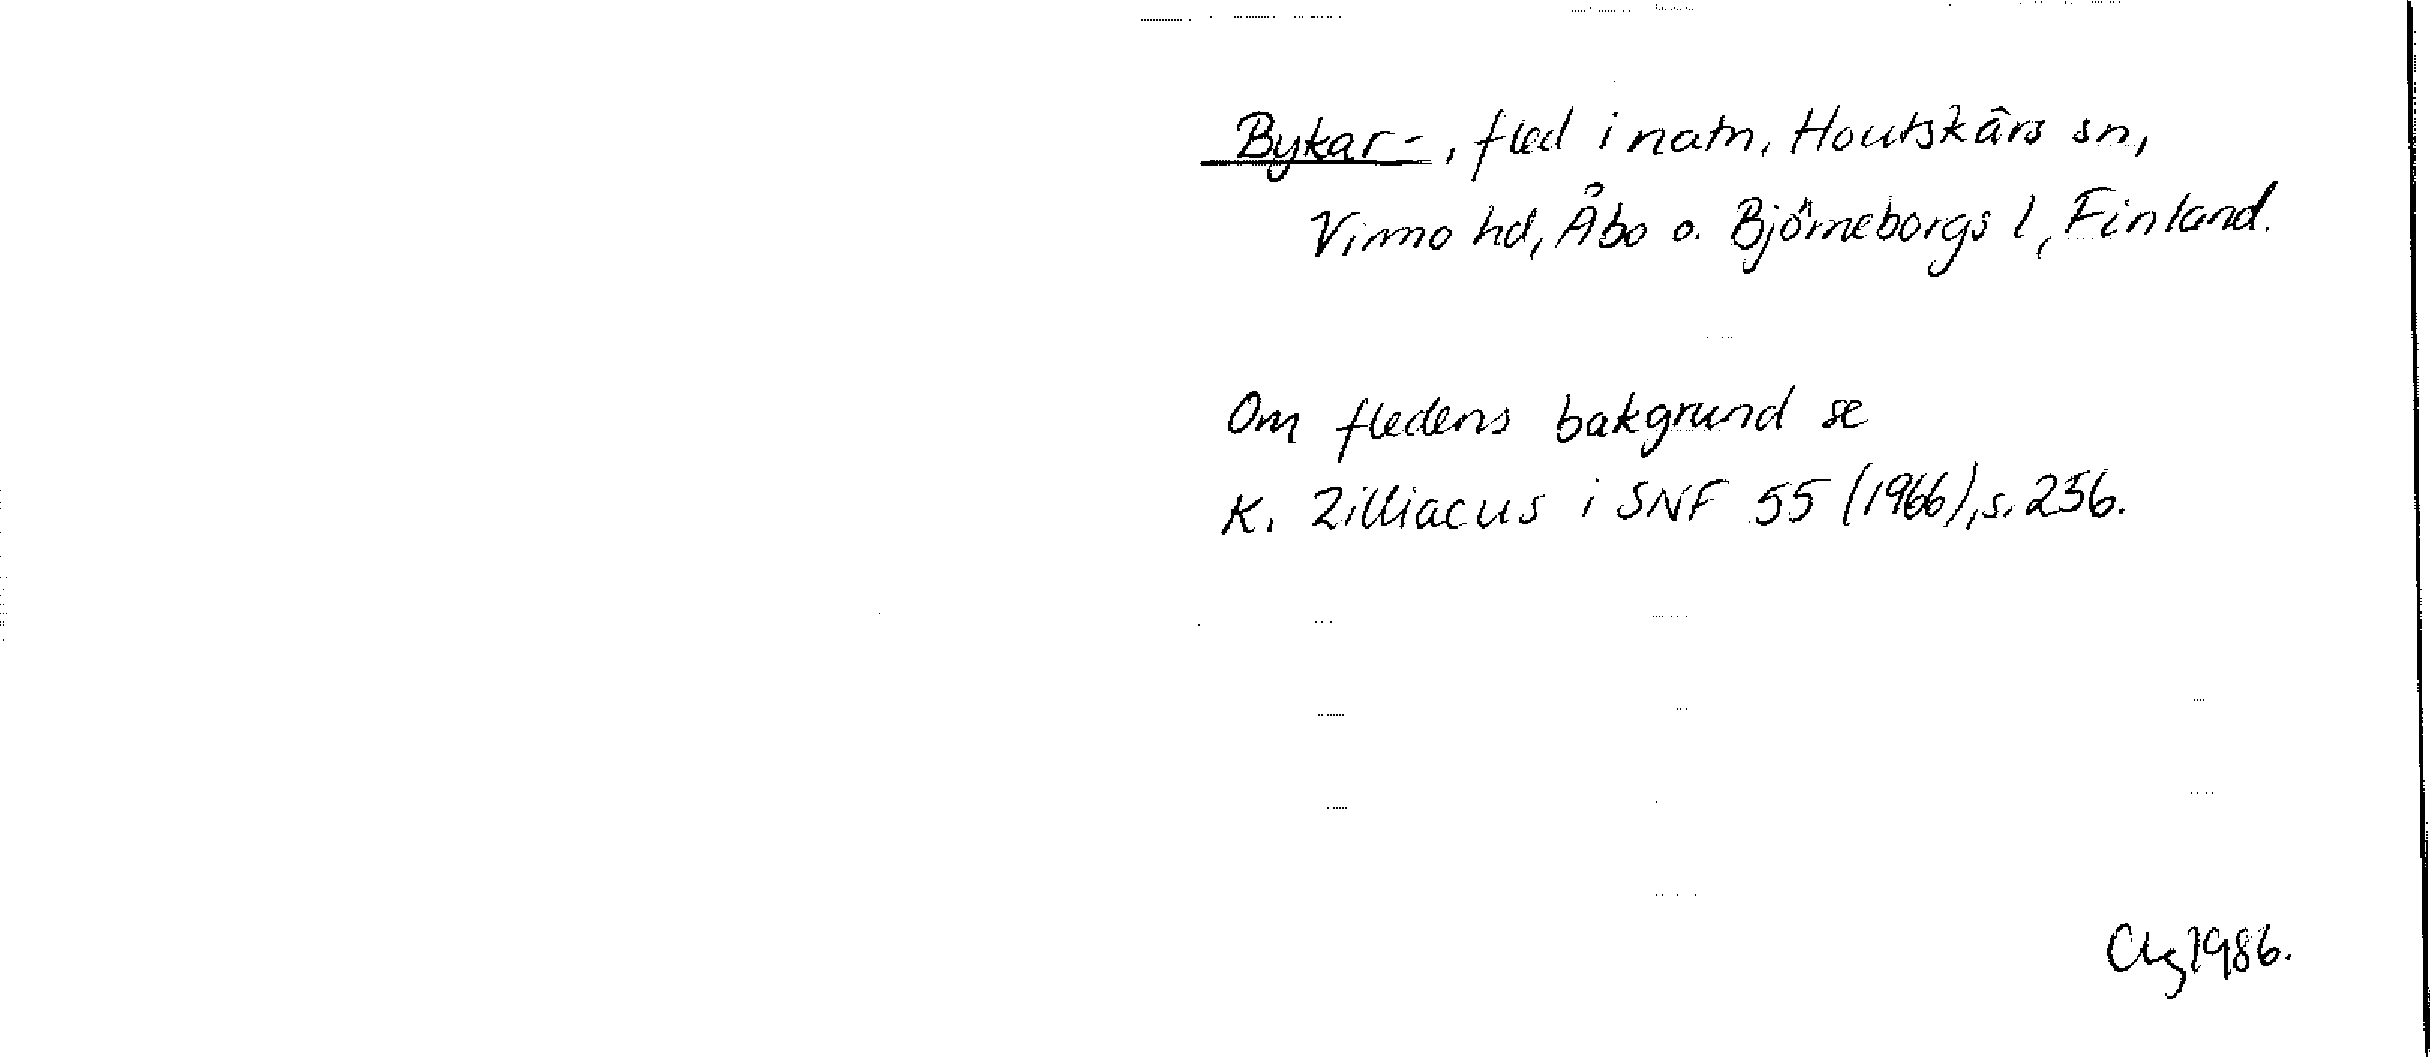 Bykar-, fled i natn, Houtskärs sn,
Virmo hd, Åbo o. Björneborgs l, Finland.
Om fledens bakgrund se
K. Zilliacus i SNF 55 (1966), s. 256.
1986.